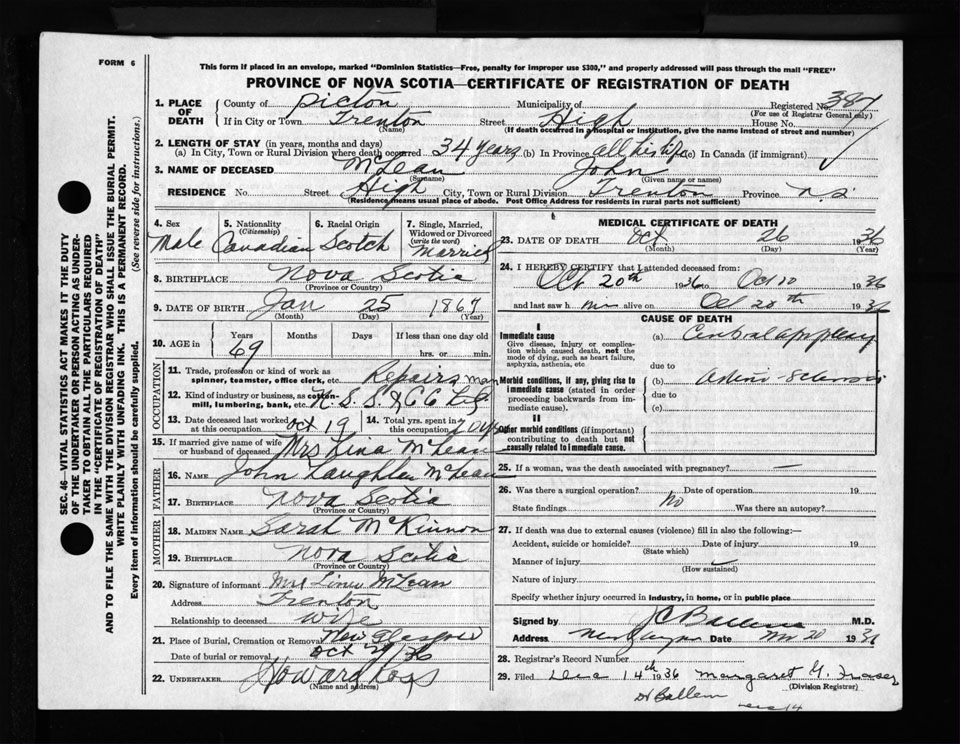 FORM 6
This form if placed in an envelope, marked "Dominion Statistics—Free, penalty for improper use $300," and properly addressed will pass through the mail "FREE"
PROVINCE OF NOVA SCOTIA—CERTIFICATE OF REGISTRATION OF DEATH
SEC. 46—VITAL STATISTICS ACT MAKES IT THE DUTY
OF THE UNDERTAKER OR PERSON ACTING AS UNDER-
TAKER TO OBTAIN ALL THE PARTICULARS REQUIRED
IN THE "CERTIFICATE OF REGISTRATION OF DEATH"
AND TO FILE THE SAME WITH THE DIVISION REGISTRAR WHO SHALL ISSUE THE BURIAL PERMIT.
WRITE PLAINLY WITH UNFADING INK. THIS IS A PERMANENT RECORD.
Every item of information should be carefully supplied. (See reverse side for instructions.)
1. PLACE OF DEATH County of Pictou Municipality of Registered No. 387
(For use of Registrar General only)
If in City or Town Trenton Street High House No.
(Name) (If death occurred in a hospital or institution, give the name instead of street and number)
2. LENGTH OF STAY (in years, months and days)
(a) In City, Town or Rural Division where death occurred 34 years (b) In Province all his life (c) In Canada (if immigrant)
3. NAME OF DECEASED McLean John
(Surname) (Given name or names)
RESIDENCE No. Street High City, Town or Rural Division Trenton Province N.S.
(Residence means usual place of abode. Post Office Address for residents in rural parts not sufficient)
4. Sex 5. Nationality (Citizenship) 6. Racial Origin 7. Single, Married, Widowed or Divorced (write the word)
Male Canadian Scotch Married
8. BIRTHPLACE Nova Scotia
(Province or Country)
9. DATE OF BIRTH Jan 25 1867
(Month) (Day) (Year)
10. AGE in Years Months Days If less than one day old
69 hrs. or min.
OCCUPATION
11. Trade, profession or kind of work as spinner, teamster, office clerk, etc. Repairs man
12. Kind of industry or business, as cotton-mill, lumbering, bank, etc. N.S.S. & C Co Ltd
13. Date deceased last worked at this occupation Oct 19 14. Total yrs. spent in this occupation
15. If married give name of wife or husband of deceased Mrs Lina McLean
FATHER
16. NAME John Laughlen McLean
17. BIRTHPLACE Nova Scotia
(Province or Country)
MOTHER
18. MAIDEN NAME Sarah McKinnon
19. BIRTHPLACE Nova Scotia
(Province or Country)
20. Signature of informant Mrs McLean
Address Trenton
Relationship to deceased wife
21. Place of Burial, Cremation or Removal New Glasgow
Date of burial or removal Oct 29/36
22. UNDERTAKER Howard Ross
(Name and address)
MEDICAL CERTIFICATE OF DEATH
23. DATE OF DEATH Oct 26 1936
(Month) (Day) (Year)
24. I HEREBY CERTIFY that I attended deceased from:
Oct 20th 1936 to Oct 1936
and last saw him alive on Oct 20th 1936
CAUSE OF DEATH
I
Immediate cause
Give disease, injury or complication which caused death, not the mode of dying, such as heart failure, asphyxia, asthenia, etc
(a) Cerebral apoplexy
due to
Morbid conditions, if any, giving rise to immediate cause (stated in order proceeding backwards from immediate cause).
(b) Arterio Sclerosis
due to
(c)
II
Other morbid conditions (if important) contributing to death but not causally related to immediate cause.
25. If a woman, was the death associated with pregnancy? —
26. Was there a surgical operation? No Date of operation 19
State findings Was there an autopsy?
27. If death was due to external causes (violence) fill in also the following:—
Accident, suicide or homicide? Date of injury 19
(State which)
Manner of injury
(How sustained)
Nature of injury
Specify whether injury occurred in industry, in home, or in public place
Signed by J C Ballem M.D.
Address New Glasgow Date Nov 20 1936
28. Registrar's Record Number
29. Filed Dec 14th 1936 Margaret G. Fraser
(Division Registrar)
Dr Ballem
Dec 14